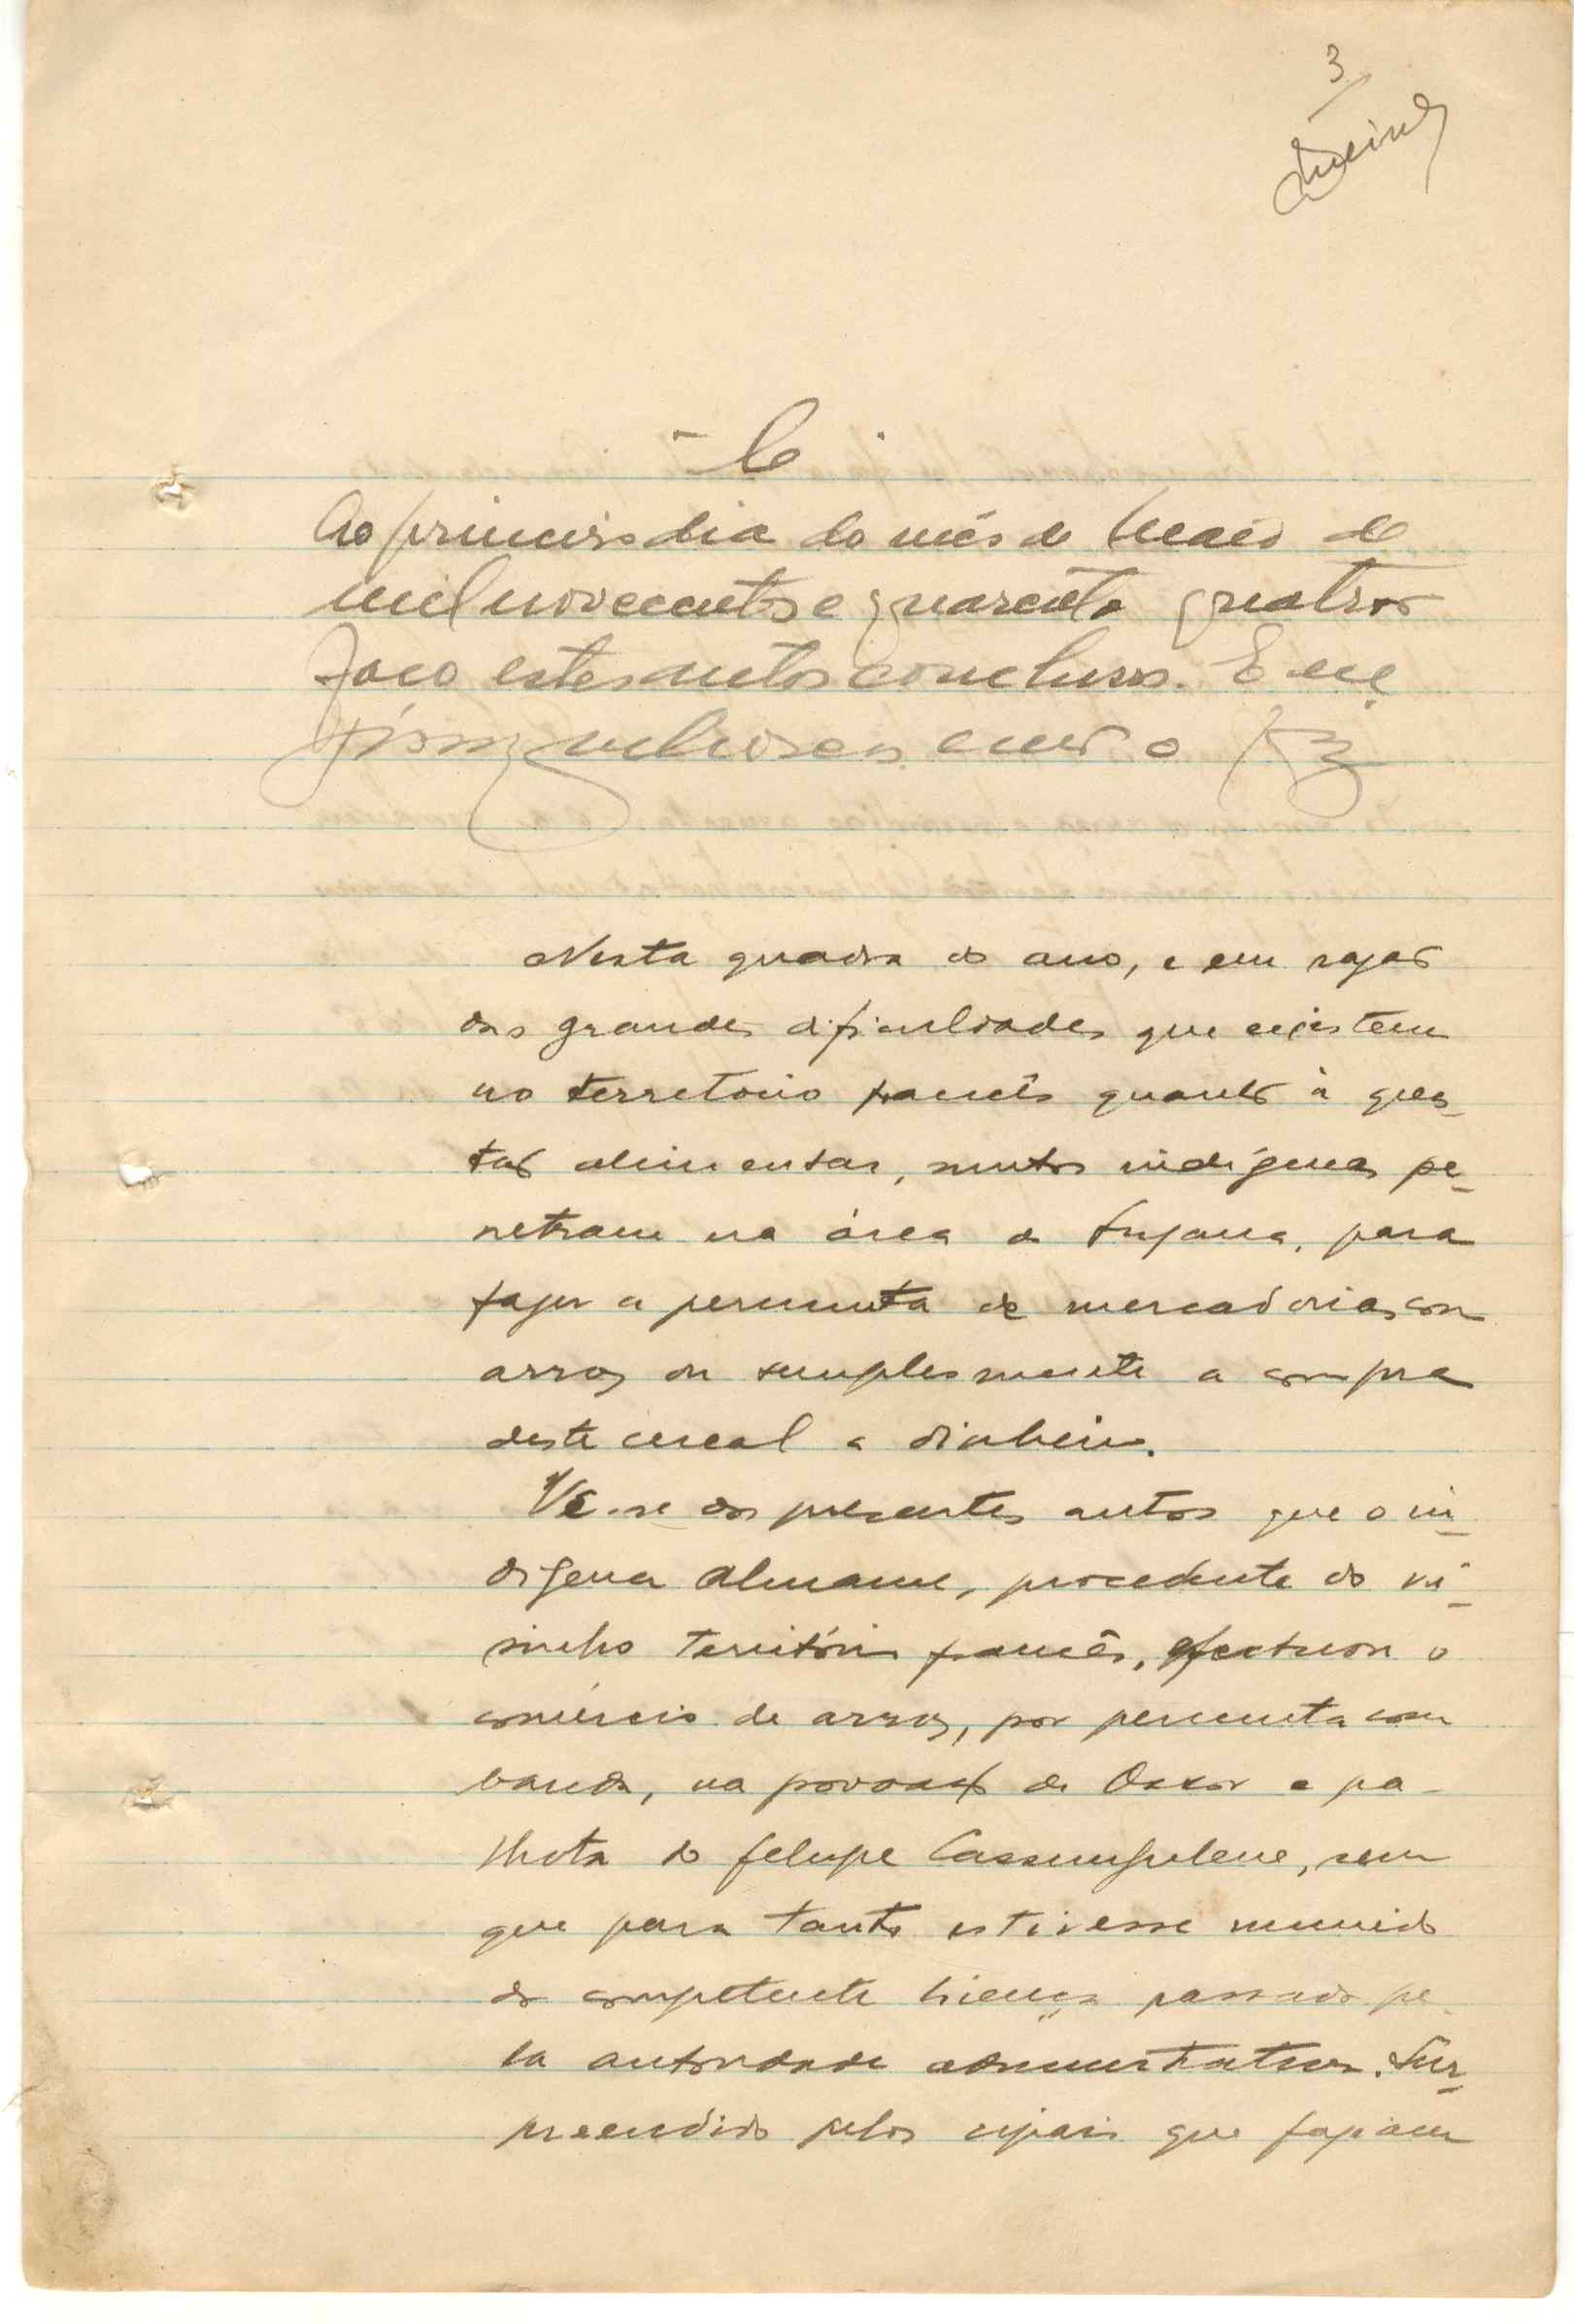 3
Ao primeiro dia do mês de Maio de
mil novecentos e quarenta quatro
faço estes autos conclusos. E eu,
escrivão o fiz
Nesta quadra do ano, e em razão
das grandes dificuldades que existem
no terretorio francês quanto à ques-
tão alimentar, muitos indígenas pe-
netram na área de Suzana, para
fazer a permuta de mercadorias com
arroz ou simplesmente a compra
deste cereal a dinheiro.
Vê-se dos presentes autos que o in-
digena Almame, procedente do vi-
sinho território francês, efectuou o
comércio de arroz, por permuta com
banda, na povoação de Ossor e pa-
lhota do felupe Cassumpulene, sem
que para tanto estivesse munido
da competente licença passada pe-
la autoridade administrativa. Sur-
preendido pelos cipais que faziam